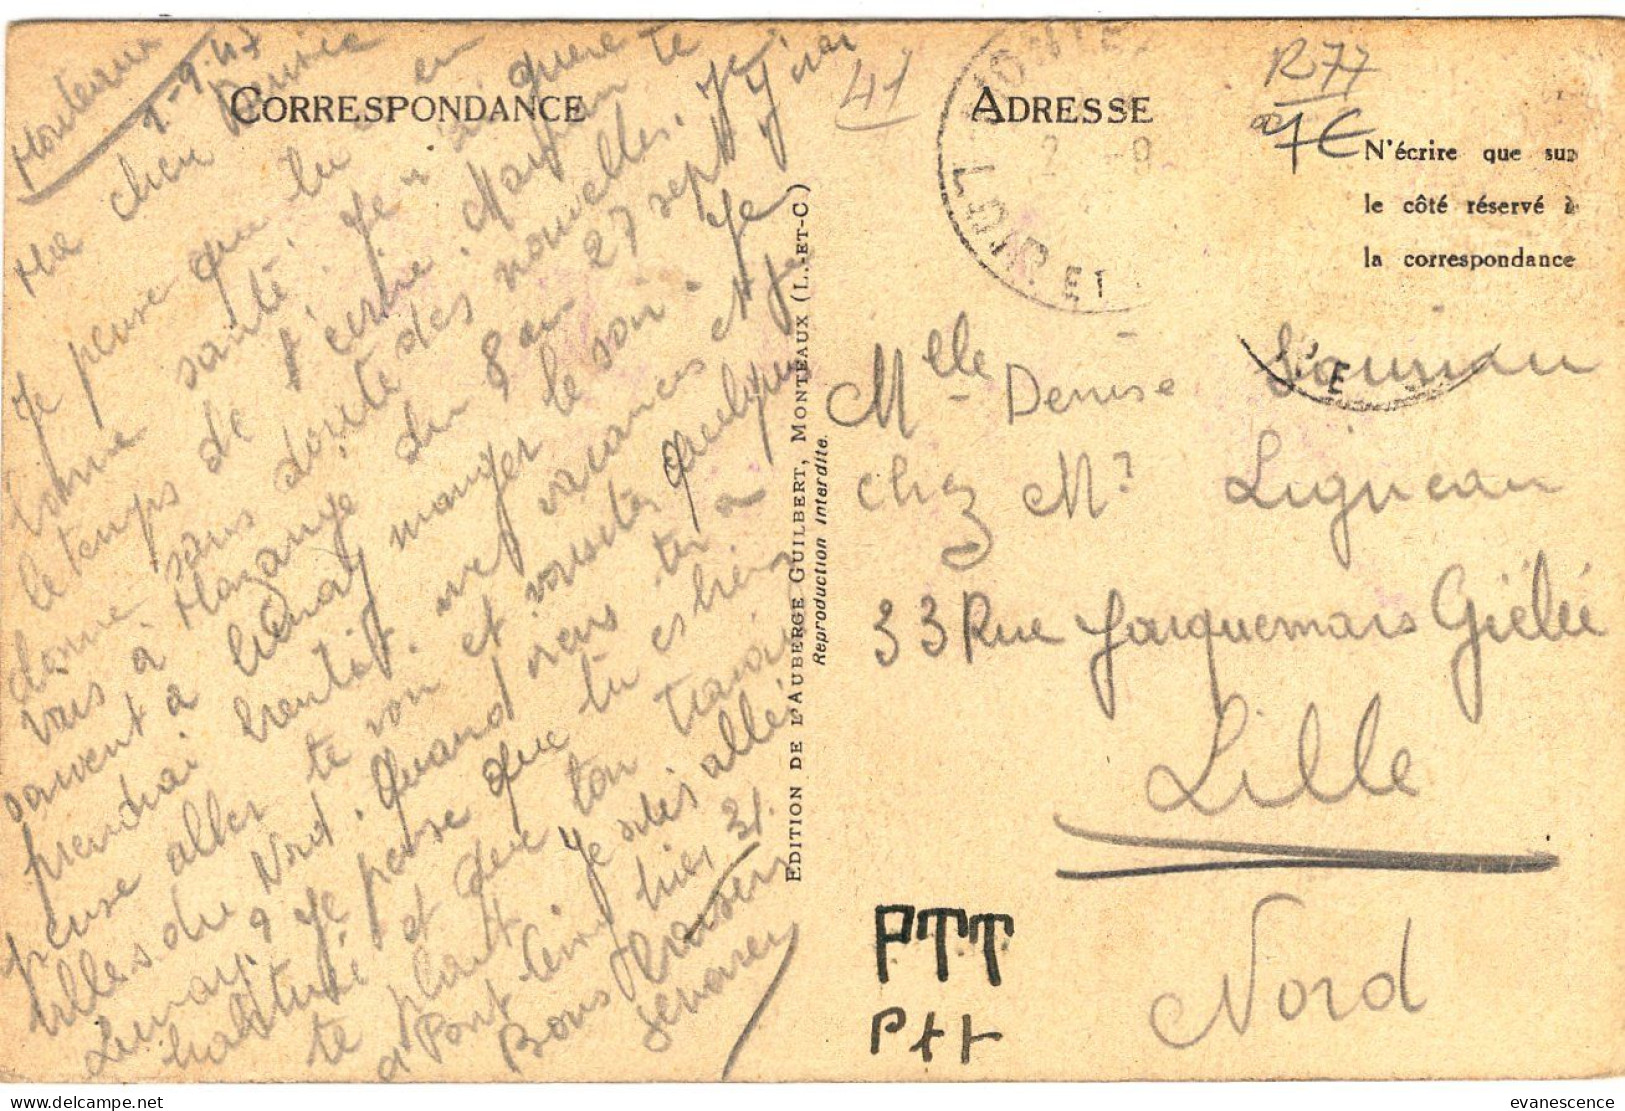 Monteaux
1-9-47
CORRESPONDANCE
Ma chère Denise
Je pense que tu es en
bonne santé. Je n'ai guère
le temps de t'écrire. Maman te
donne sans doute des nouvelles. Je
vais à Mazangé du 8 au 27 sept. J'irai
souvent à Lunay manger le soir. Je
prendrai
pense aller te voir
villes du Nord. Quand viens tu à
Lunay? Je pense que tu es bien
habituée et que ton travail
te plait. Je suis allée
à Pont Levoy hier 31.
Bons baisers
41
ADRESSE
R77
7€
N'écrire que sur
le côté réservé à
la correspondance
LOIR ET
2 -9
E
Mlle Denise
chez Mr Ligneau
33 Rue Jacquemars Giélée
Lille
Nord
PTT
Ptt
EDITION DE L'AUBERGE GUILBERT, MONTEAUX (L.-ET-C.)
Reproduction Interdite.
evanescence